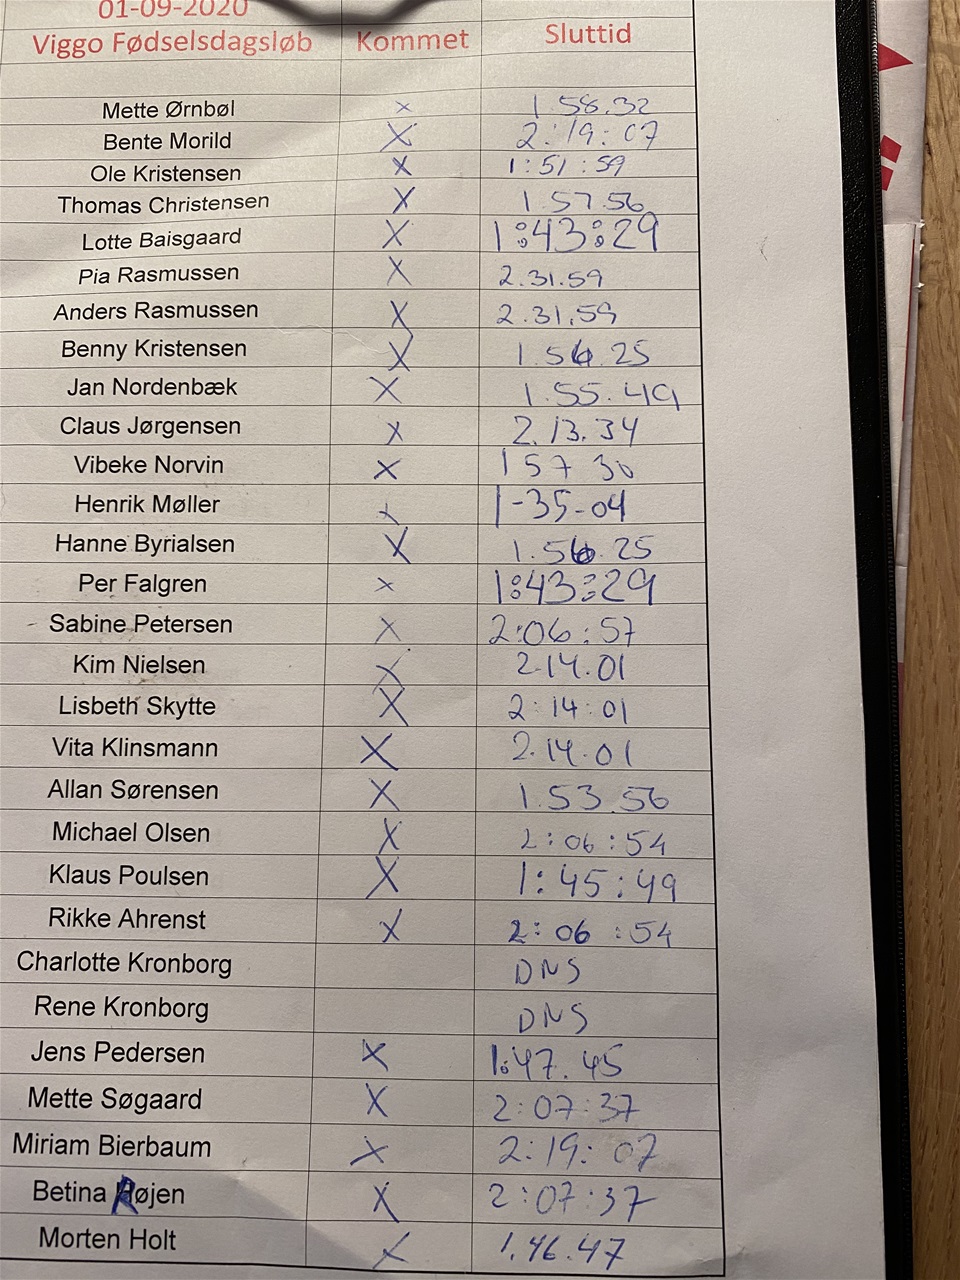 01-09-2020
Viggo Fødselsdagsløb Kommet Sluttid
Mette Ørnbøl X 1.58.32
Bente Morild X 2:19:07
Ole Kristensen X 1:51:59
Thomas Christensen X 1.57.56
Lotte Baisgaard X 1:43:29
Pia Rasmussen X 2.31.59
Anders Rasmussen X 2.31.59
Benny Kristensen X 1.56.25
Jan Nordenbæk X 1.55.49
Claus Jørgensen X 2.13.34
Vibeke Norvin X 1 57 30
Henrik Møller X 1-35-04
Hanne Byrialsen X 1.56.25
Per Falgren X 1:43:29
Sabine Petersen X 2:06:57
Kim Nielsen X 2.14.01
Lisbeth Skytte X 2:14:01
Vita Klinsmann X 2.14.01
Allan Sørensen X 1.53.56
Michael Olsen X 2:06:54
Klaus Poulsen X 1:45:49
Rikke Ahrenst X 2:06:54
Charlotte Kronborg DNS
Rene Kronborg DNS
Jens Pedersen X 1:47.45
Mette Søgaard X 2:07:37
Miriam Bierbaum X 2:19:07
Betina Røjen X 2:07:37
Morten Holt X 1.46.47